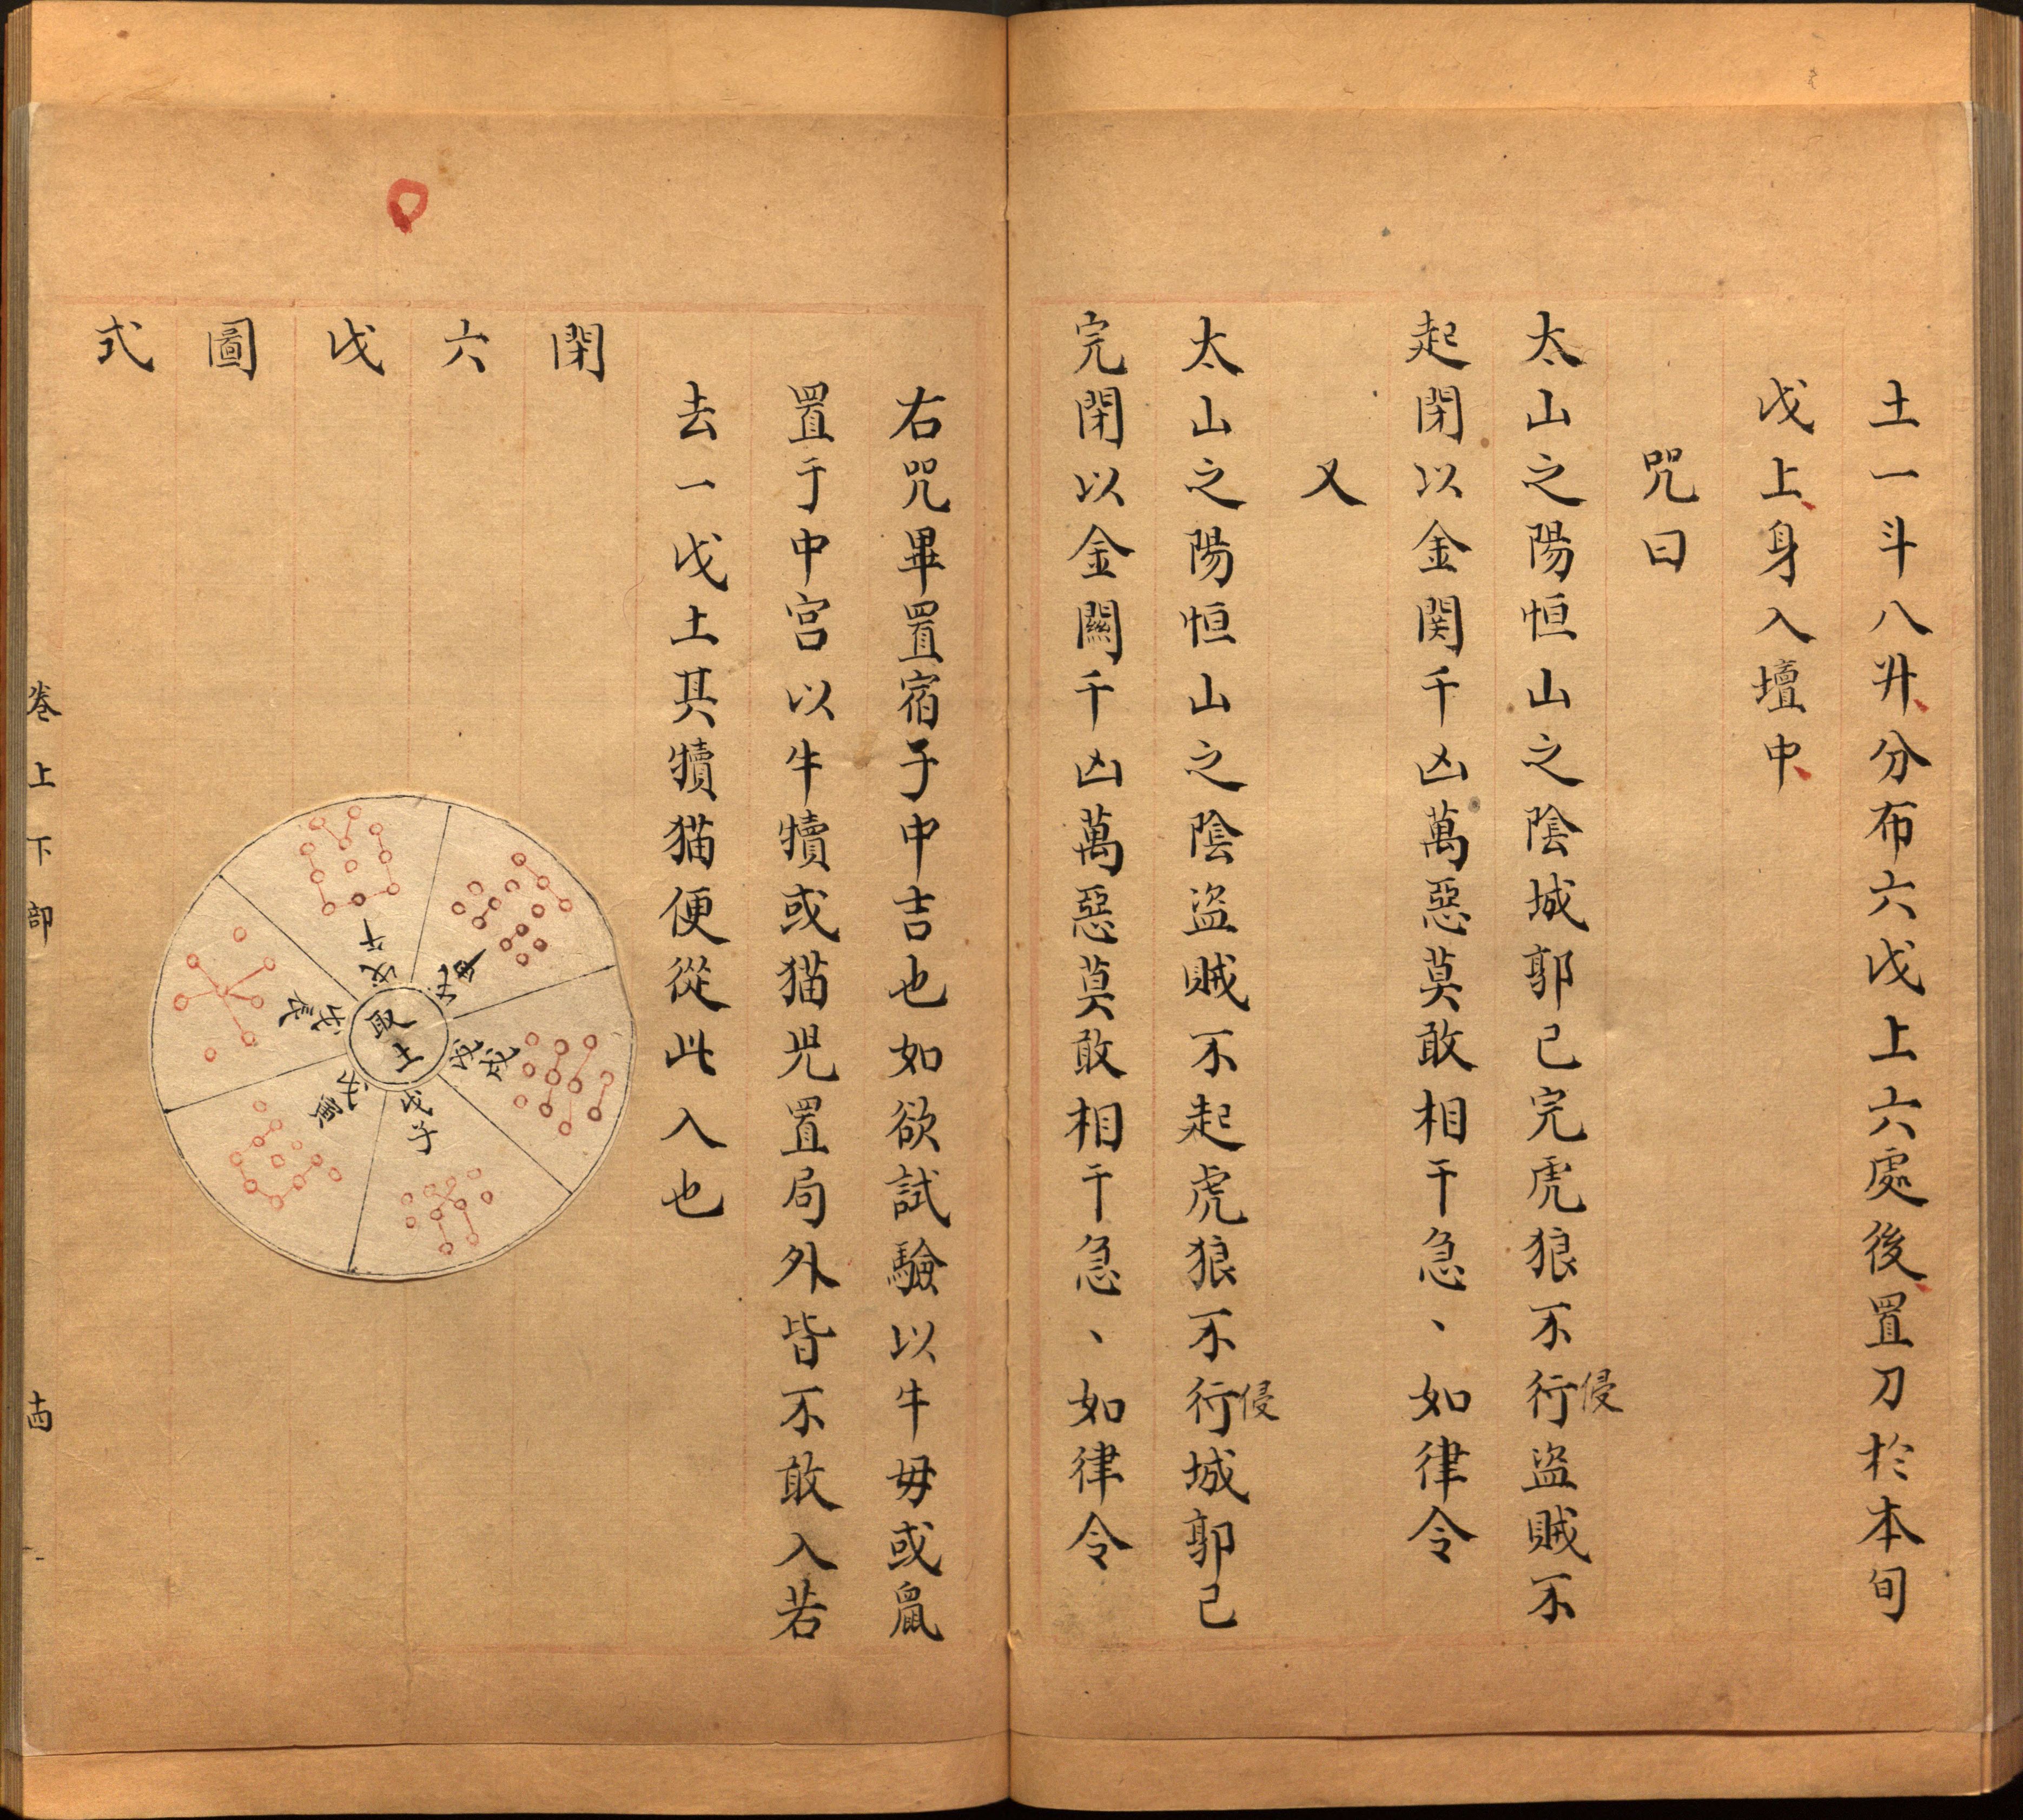 土一斗八升分布六戊上六處後置刀於本旬
戊上身入壇中
咒曰
太山之陽恒山之陰城郭已完虎狼不行盜賊不
侵
起閉以金関千凶萬惡莫敢相干急、如律令
又
太山之陽恒山之陰盜賊不起虎狼不行城郭已
侵
完閉以金關千凶萬惡莫敢相干急、如律令
右咒畢置宿子中吉也如欲試驗以牛母或鼠
置于中宮以牛犢或猫児置局外皆不敢入若
去一戊土其犢猫便從此入也
閉六戊圖式
戊午
戊申
戊戌
戊子
戊寅
戊辰
土
卷上下部
十四